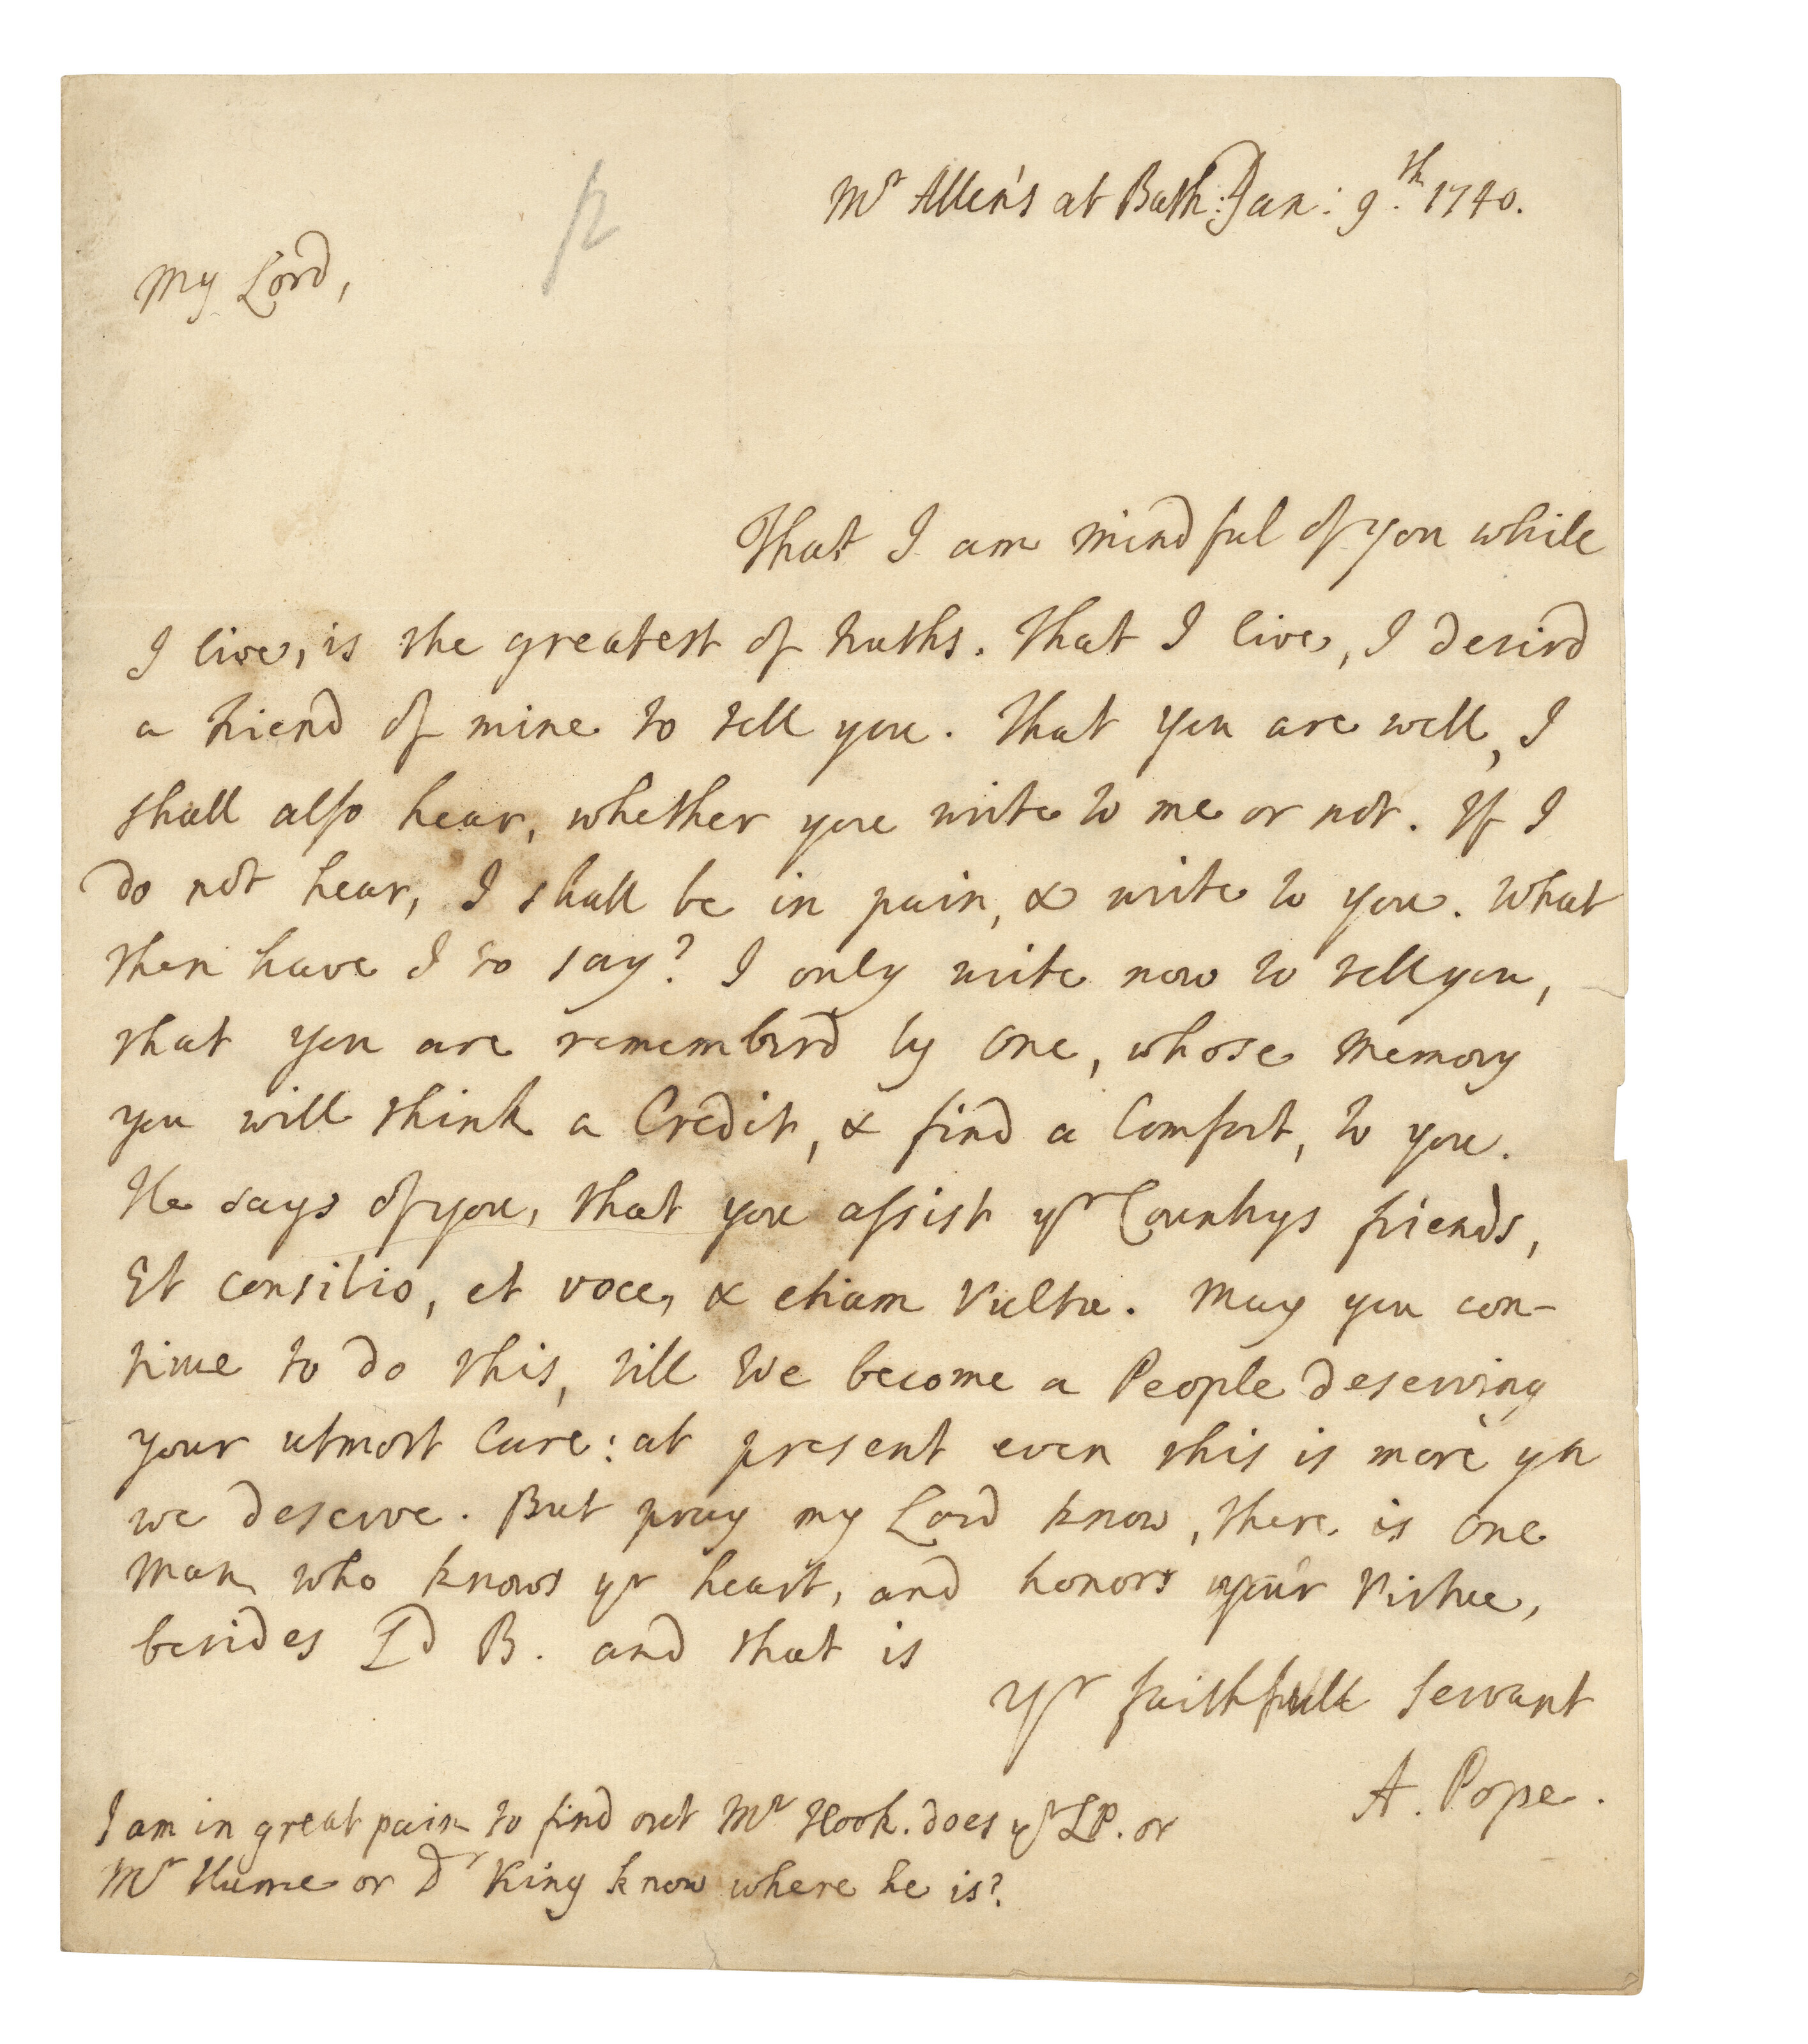 Mr Allen's at Bath: Jan: 9th. 1740.
My Lord,
That I am mindful of you while
I live, is the greatest of truths. That I live, I desird
a friend of mine to tell you. That you are well, I
shall also hear, whether you write to me or not. If I
do not hear, I shall be in pain, & write to you. What
then have I to say? I only write now to tell you,
that you are rememberd by One, whose Memory
you will think a Credit, & find a Comfort, to you.
He says of you, that you assist yr Countrys friends,
Et consilio, et voce, & etiam Vultu. May you con-
tinue to do this, till We become a People deserving
your utmost Care: at present even this is more yn
we deserve. But pray my Lord know, there is One
Man who knows yr heart, and honors your Virtue,
besides Ld B. and that is
Yr faithfull Servant
A. Pope.
I am in great pain to find out Mr Hook. does yr LP. or
Mr Hume or Dr King know where he is?